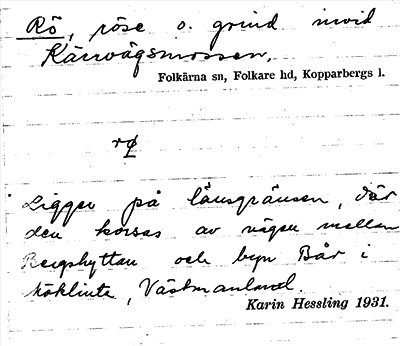 Rö, röse o. grind invid
Kärrvägsmossen.
Folkärna sn, Folkare hd, Kopparbergs l.
Ligger på länsgränsen, där
den korsas av vägen mellan
Bergshyttan och byn Bår i
Möklinta, Västmanland.
Karin Hessling 1931.